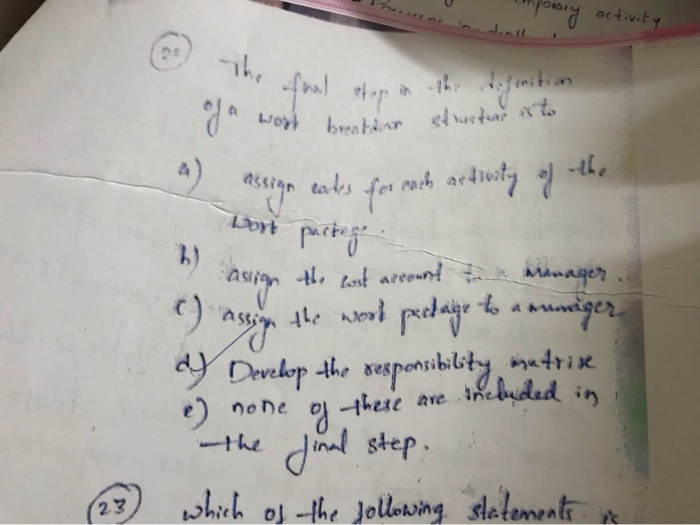 mporary activity
22
The final step in the definition
of a work breakdown structure is to
a) assign codes for each activity of the
work package.
b) assign the cost account to a manager.
c) assign the work package to a manager
d) Develop the responsibility matrix
e) none of these are included in
the final step.
23 which of the following statements is